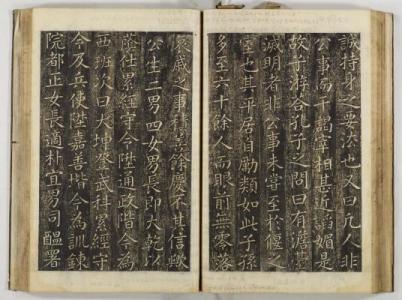 誠持身之要法也又曰凡人非
公事而干謁宰相甚近謟媚是
故子游答孔子之問曰有澹臺
滅明者非公事未嘗至於偃之
室也其平居自勵類如此子孫
多至六十餘人而眼前無零落
懷慼之事積善餘慶不其信歟
公生二男四女男長即大乾以
蔭仕累經守令陞通政階今為
西班次曰大坤登武科累經守
令及兵使陞嘉善階今為訓鍊
院都正女長適朴宜男司醞署